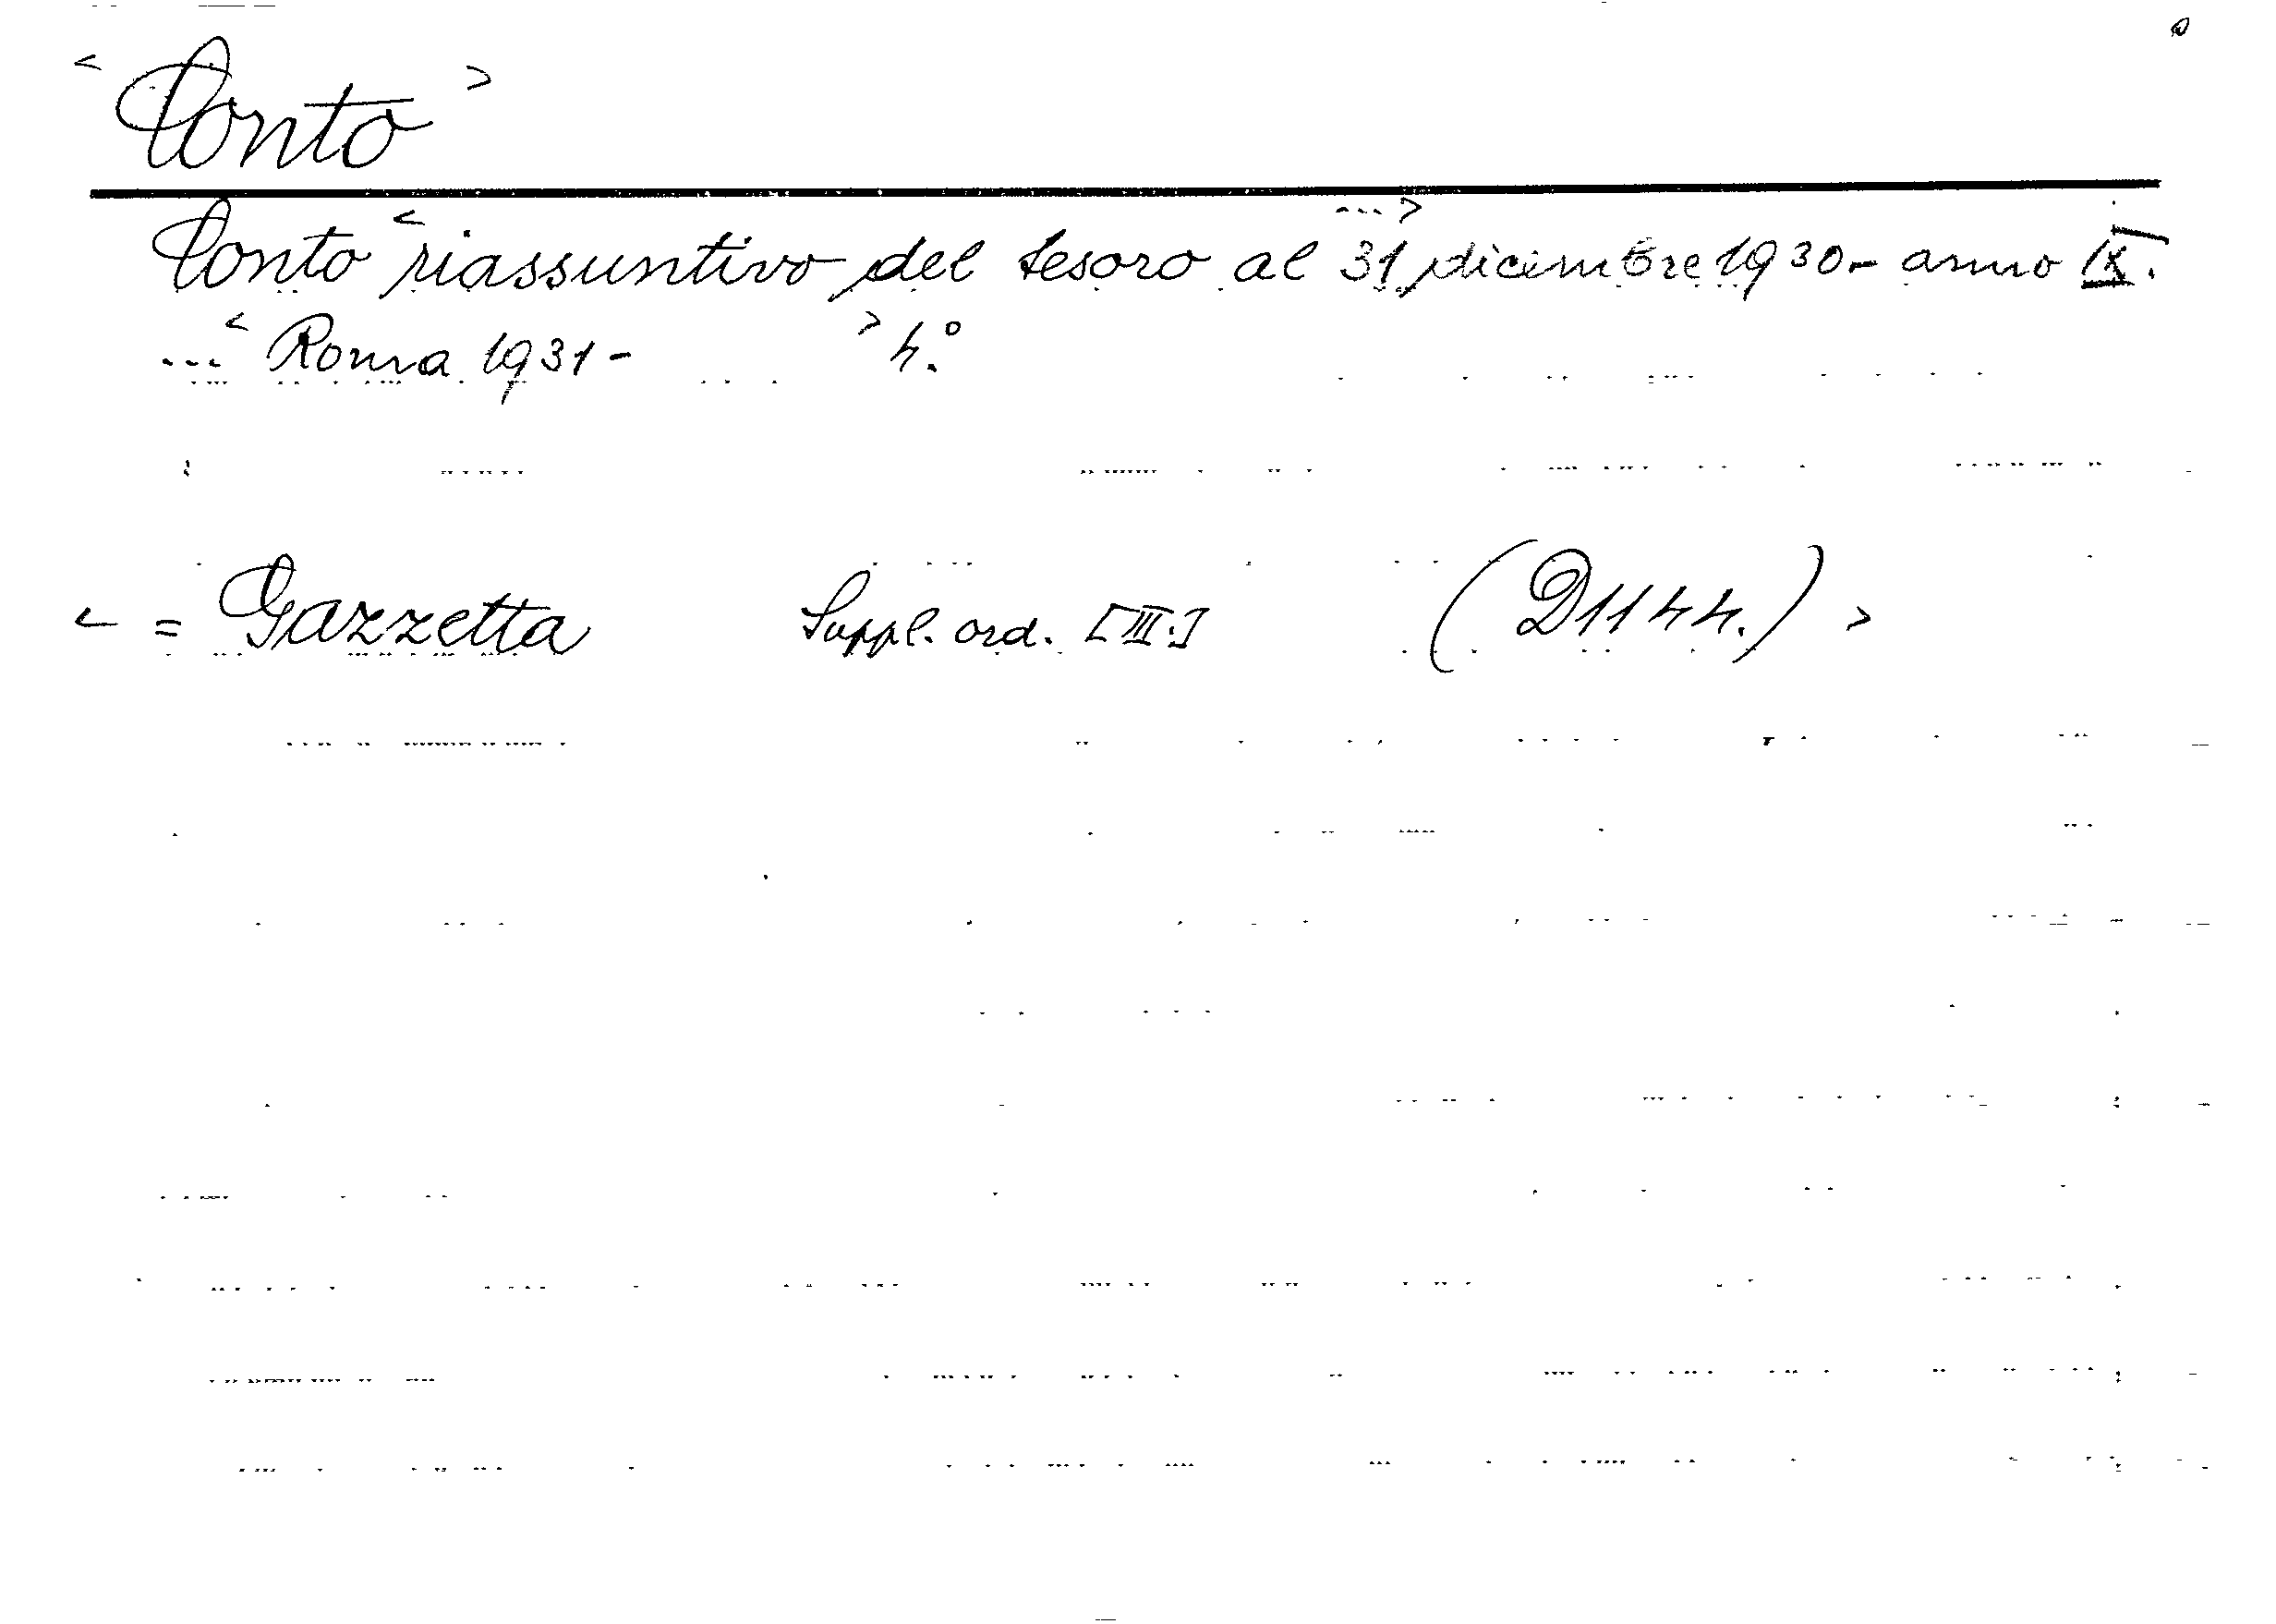 < Conto >
Conto < riassuntivo del tesoro al 31 ... > dicembre 1930 - anno IX.
... < Roma 1931 - > 4.°
< = Gazzetta Suppl. ord. [III.] (D1144.) >